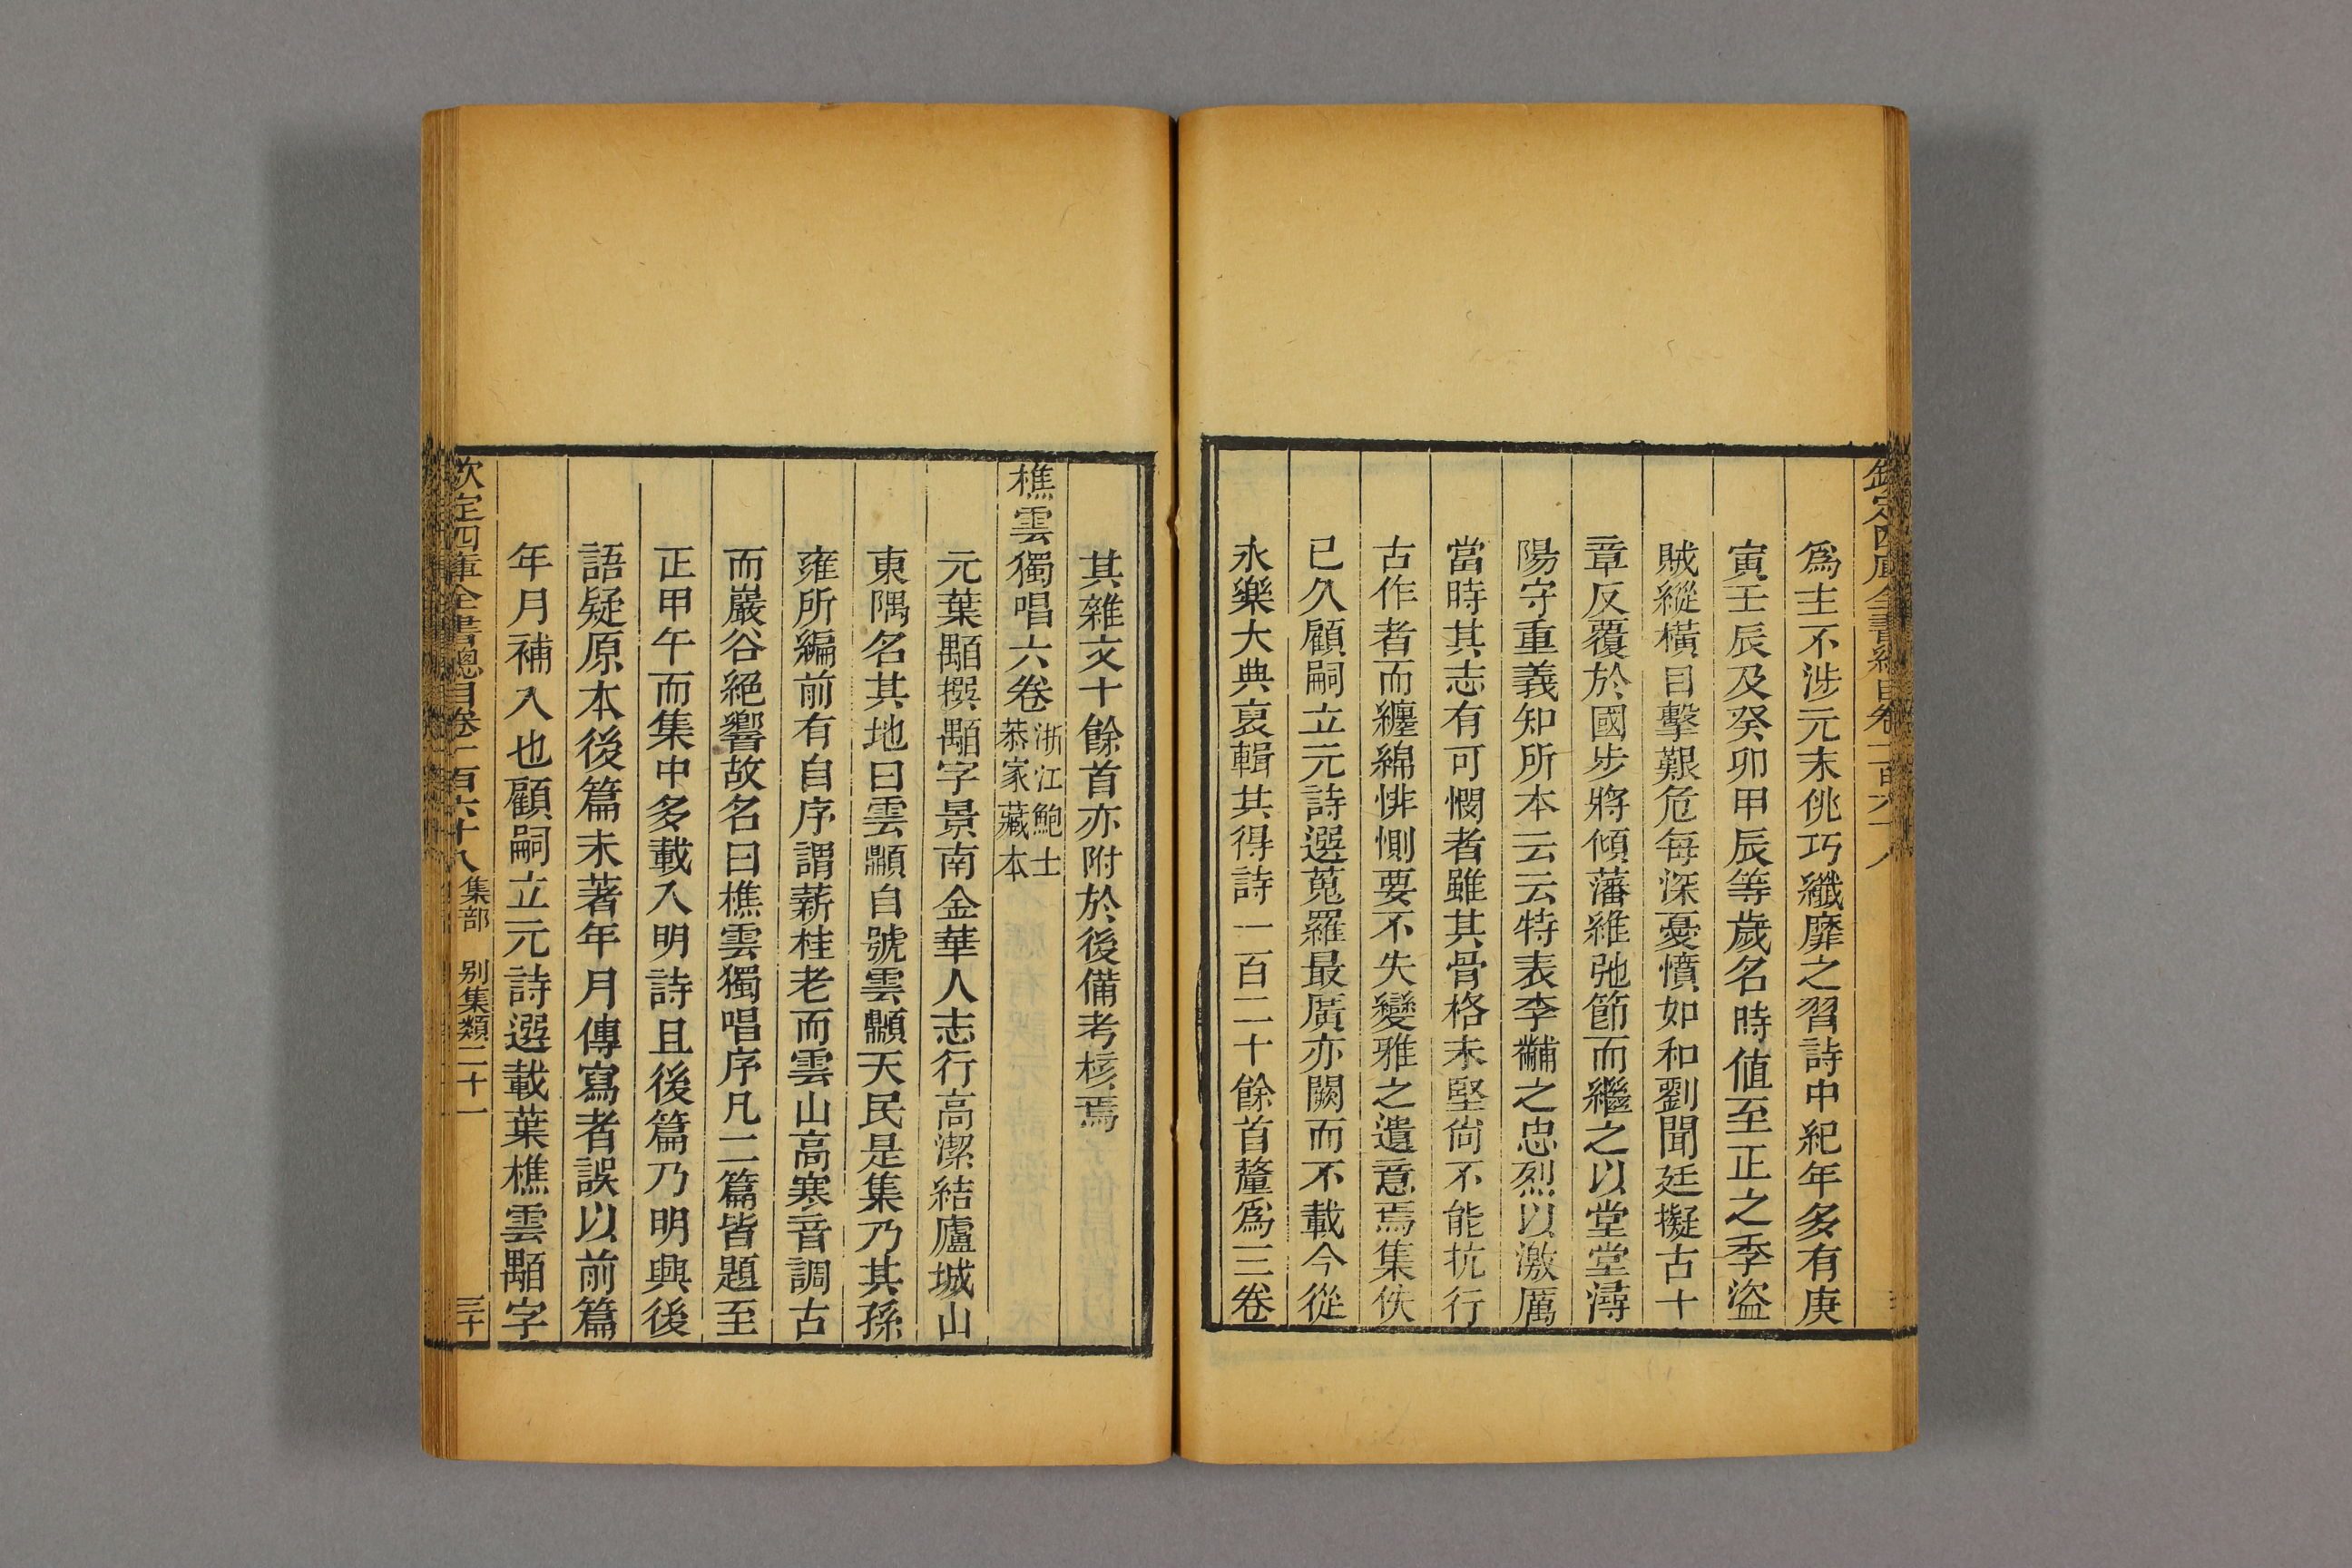 欽定四庫全書總目卷一百六十八
爲主不涉元末佻巧纖靡之習詩中紀年多有庚
寅壬辰及癸卯甲辰等歲名時値至正之季盜
賊縱橫目擊艱危每深憂憤如和劉聞廷擬古十
章反覆於國步將傾藩維弛節而繼之以堂堂潯
陽守重義知所本云云特表李黼之忠烈以激厲
當時其志有可憫者雖其骨格未堅尙不能抗行
古作者而纏綿悱惻要不失變雅之遺意焉集佚
已久顧嗣立元詩選蒐羅最廣亦闕而不載今從
永樂大典裒輯其得詩一百二十餘首釐爲三卷
其雜文十餘首亦附於後備考核焉
樵雲獨唱六卷浙江鮑士恭家藏本
元葉顒撰顒字景南金華人志行高潔結廬城山
東隅名其地曰雲顒自號雲顒天民是集乃其孫
雍所編前有自序謂薪桂老而雲山高寒音調古
而巖谷絕響故名曰樵雲獨唱序凡二篇皆題至
正甲午而集中多載入明詩且後篇乃明興後
語疑原本後篇未著年月傳寫者誤以前篇
年月補入也顧嗣立元詩選載葉樵雲顒字
欽定四庫全書總目卷一百六十八 集部 別集類二十一 三十